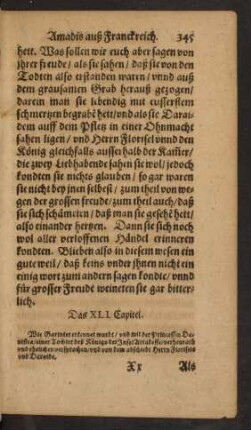 Amadis auß Franckreich. 345
hett. Was sollen wir euch aber sagen von
jhrer freude / als sie sahen / daß sie von den
Todten also erstanden waren / vnnd auß
dem grausamen Grab herauß gezogen /
darein man sie lebendig mit eusserstem
schmertzen begrabē hett / vnd als sie Darai-
dem auff dem Pfletz in einer Ohnmacht
sahen ligen / vnd Herrn Florisel vnnd den
König gleichfalls ausserhalb der Kamer /
die zwey Liebhabende sahen sie wol / jedoch
kondten sie nichts glauben / so gar waren
sie nicht bey jnen selbest / zum theil von we-
gen der grossen freude / zum theil auch / daß
sie sich schämeten / daß man sie gesehē hett /
also einander hertzen. Dann sie sich noch
wol aller verloffenen Händel erinneren
kondten. Blieben also in diesem wesen ein
gute weil / daß keins vnder jhnen nicht ein
einig wort zum andern sagen kondte / vnnd
für grosser Freude weineten sie gar bitter-
lich.
Das XLI. Capitel.
Wie Garinter erkennet wurde / vnd mit der
einer Tochter deß Königs der Insel
vnd ehelichen versprochen / vnd von dem abschiedt Herrn Florisels
vnd Daraide.
Xx Als